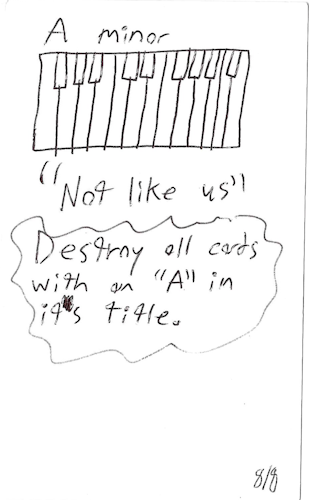 A minor
"Not like us"
Destroy all cards
with an "A" in
it's title.
8/8